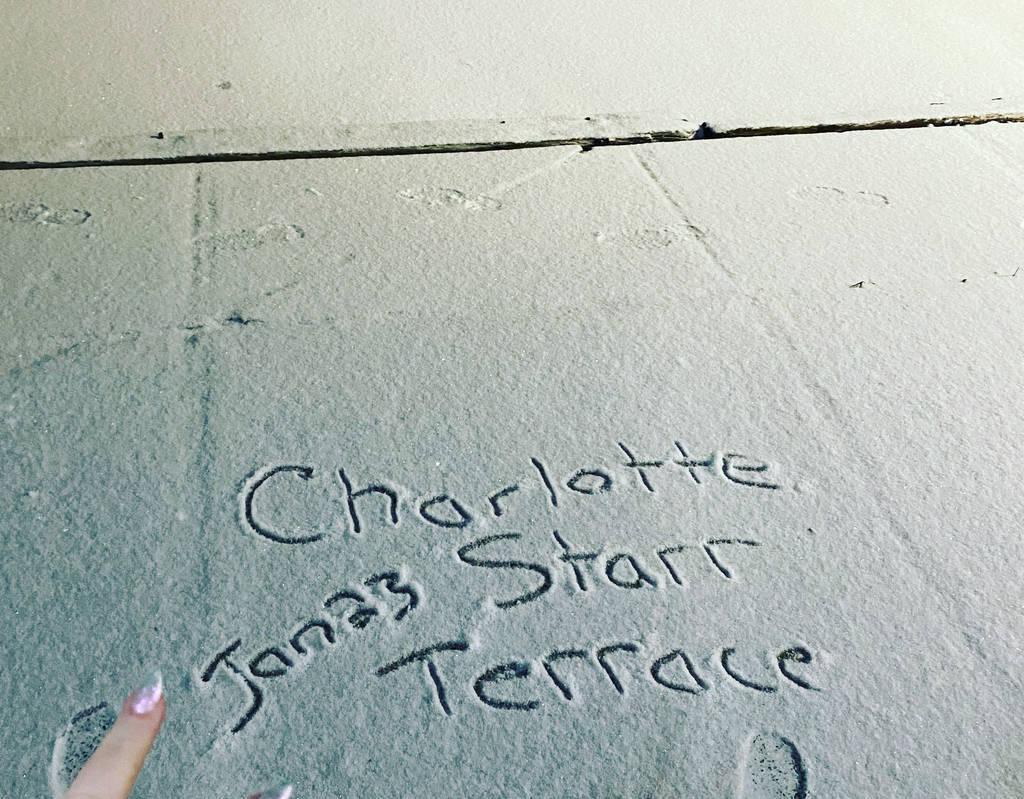 Charlotte
Starr
Jan 23
Terrace